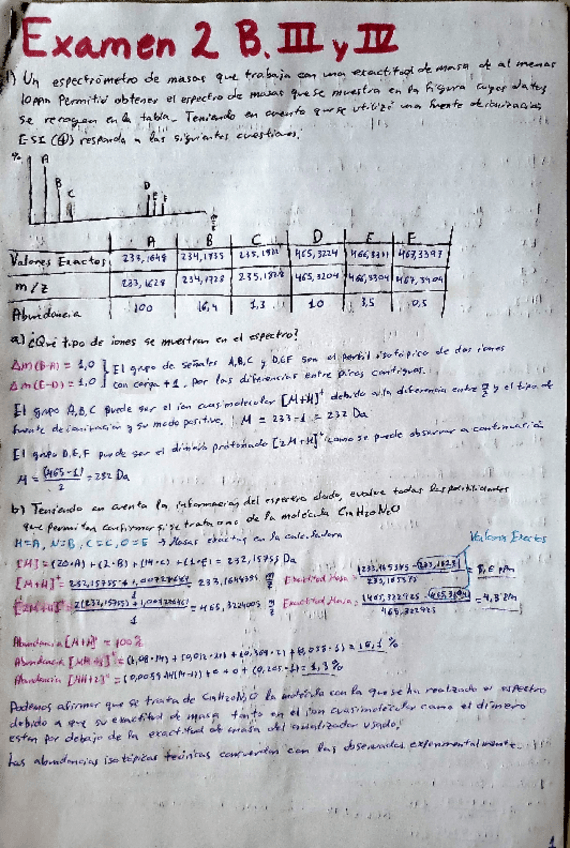 Examen 2 B. III y IV
1) Un espectrómetro de masas que trabaja con una exactitud de masa de al menos
10ppm Permitió obtener el espectro de masas que se muestra en la figura cuyos datos
se recogen en la tabla. Teniendo en cuenta que se utilizó una fuente de ionización
ESI (+) responda a las siguientes cuestiones:
%
A
B
C
D
E
F
m/z
A B C D E E
Valores Exactos 233,1648 234,1735 465,3224
m/z 233,1628 234,1728 235,1828 465,3204 466,3304 467,3404
Abundancia 100 16,4 1,3 10 3,5 0,5
a) ¿Qué tipo de iones se muestran en el espectro?
Δm(B-A) = 1,0 } El grupo de señales A,B,C y D,E,F son el perfil isotópico de dos iones
Δm(E-D) = 1,0 } con carga +1, por las diferencias entre picos contiguos.
El grupo A,B,C puede ser el ion cuasimolecular [M+H]+ debido a la diferencia entre m/z y el tipo de
fuente de ionización y su modo positivo. M = 233-1 = 232 Da
El grupo D,E,F puede ser el dímero protonado [2M+H]+ como se puede observar a continuación
M = (465-1)/2 = 232 Da
b) Teniendo en cuenta la información del espectro dado, evalúe todas las posibilidades
que permitan confirmar si se trata o no de la molécula C14H20N2O
H=A, N=B, C=C, O=E → Masas exactas en la calculadora
Valores Exactos
[M] = (20·A) + (2·B) + (14·C) + (1·E) = 232,15755 Da
[M+H]+ = = 233,1648 m/z Exactitud Masa = = ppm
[2M+H]+ = = 465,322405 m/z Exactitud Masa = = 4,3 ppm
Abundancia [M+H]+ = 100%
Abundancia = (1,08·14) + (0,012·21) + (0,369·2) + (0,038·1) = 16,1 %
Abundancia = + 0 + 0 + (0,205·1) = 1,3 %
Podemos afirmar que se trata de C14H20N2O la molécula con la que se ha realizado el espectro
debido a que su exactitud de masa tanto en el ion cuasimolecular como el dímero
están por debajo de la exactitud de masa del analizador usado.
Las abundancias isotópicas teóricas concuerdan con las observadas experimentalmente.
1